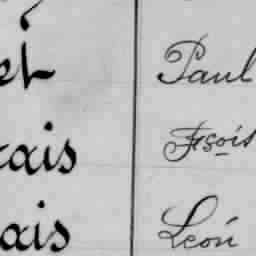 et Paul
ais Fçois
ais Léon